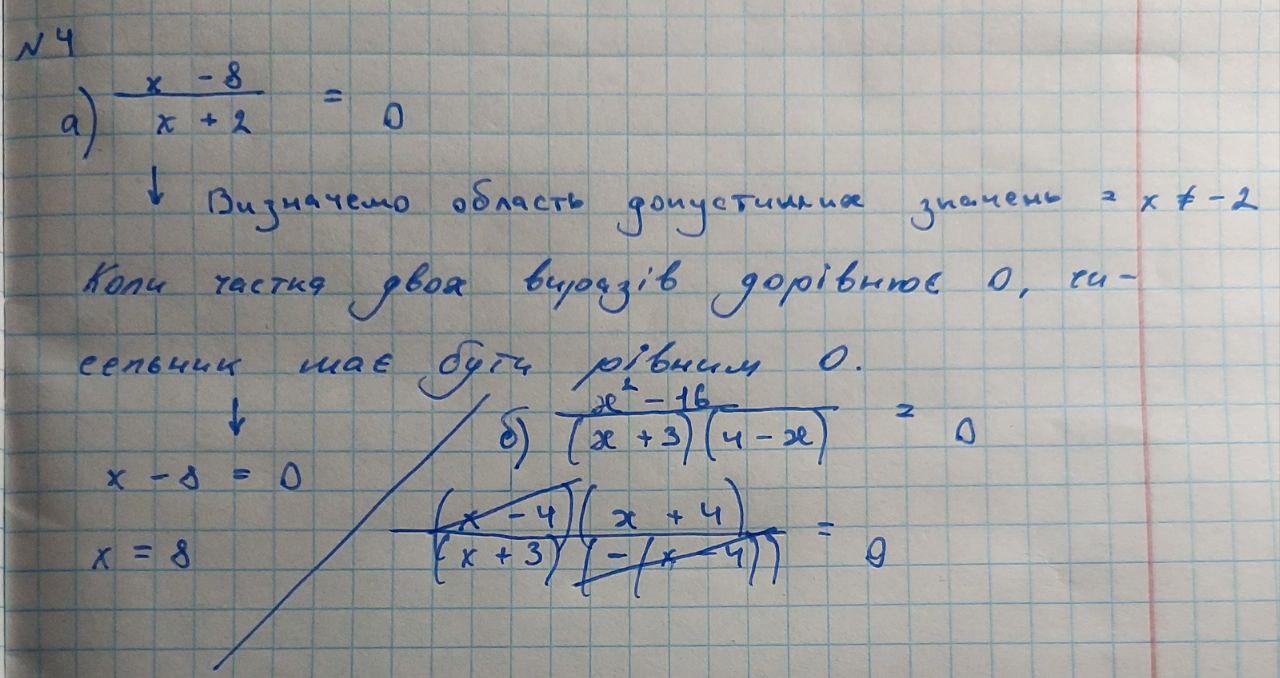 N 4
а) x - 8 / x + 2 = 0
↓ Визначемо область допустимих значень = x ≠ -2
Коли частка двох виразів дорівнює 0, чи-
сельник має бути рівним 0.
↓
x - 8 = 0
x = 8
б) x² - 16 / (x + 3)(4 - x) = 0
(x - 4)(x + 4) / (x + 3)(-(x - 4)) = 0